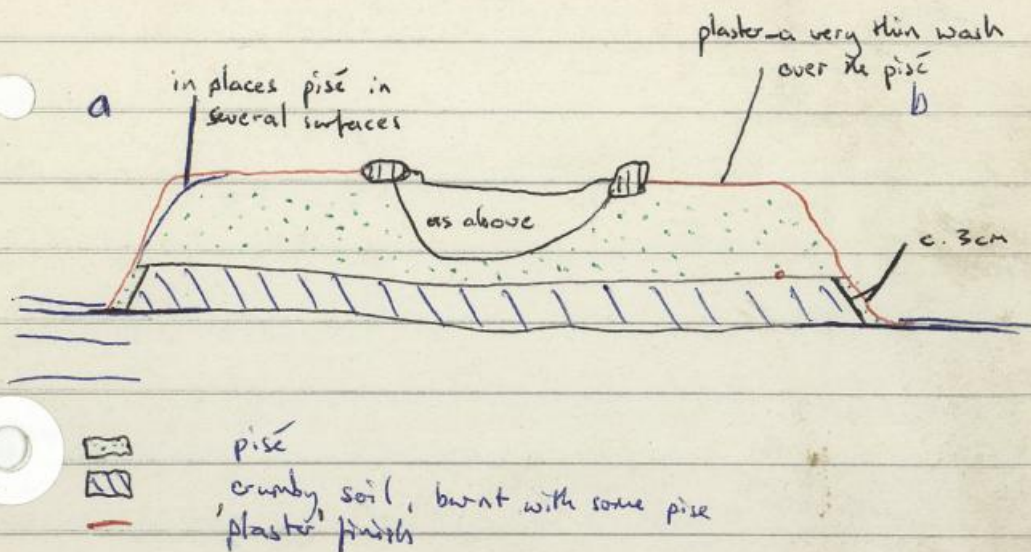 plaster-a very thin wash
over the pisé
in places pisé in
several surfaces
a
b
as above
c. 3cm
pisé
crumby soil, burnt with some pise
'plaster' finish